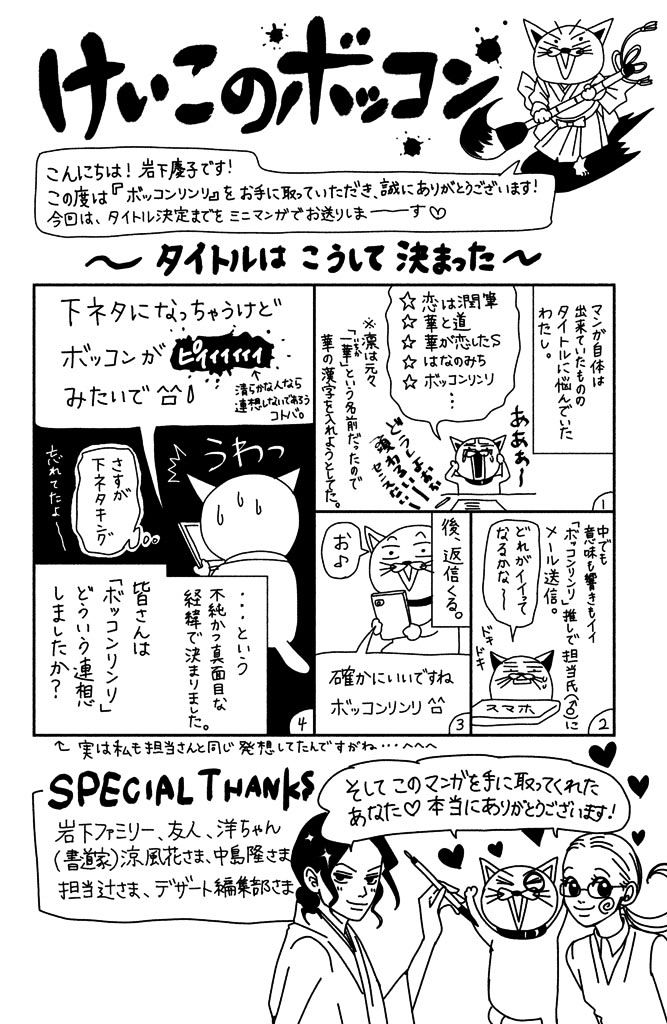 けいこのボッコン
こんにちは！岩下慶子です！
この度は『ボッコンリンリ』をお手に取っていただき、誠にありがとうございます！
今回は、タイトル決定までをミニマンガでお送りしまーーーす♡
〜タイトルは こうして 決まった〜
マンガ自体は
出来ていたものの
タイトルに悩んでいた
わたし。
☆恋は潤筆
☆華と道
☆華が恋したS
☆はなのみち
☆ボッコンリンリ
⋮
※凛は元々
「一華」という名前だったので
いちか
華の漢字を入れようとしてた。
ああぁ〜
どうしよぉぉ
頭わるい
センスない
1
中でも
意味も響きもイイ
「ボッコンリンリ」推しで担当氏(♂)に
メール送信。
どれがイイって
なるかな〜
ドキ
ドキ
スマホ
2
後、返信くる。
お♪
確かにいいですね
ボッコンリンリ^^
3
下ネタになっちゃうけど
ボッコンが ピィイイイイイ
みたいで^^♪
↑
清らかな人なら
連想しないであろう
コトバ。
うわっ
さすが
下ネタキング
忘れてたよー
・・・という
不純かつ真面目な
経緯で決まりました。
皆さんは
「ボッコンリンリ」
どういう連想
しましたか？
4
実は私も担当さんと同じ発想してたんですがね・・・へへへ
SPECIAL THANKS
岩下ファミリー、友人、洋ちゃん
(書道家)涼風花さま、中島隆さま
担当辻さま、デザート編集部さま
そしてこのマンガを手に取ってくれた
あなた♡本当にありがとうございます！